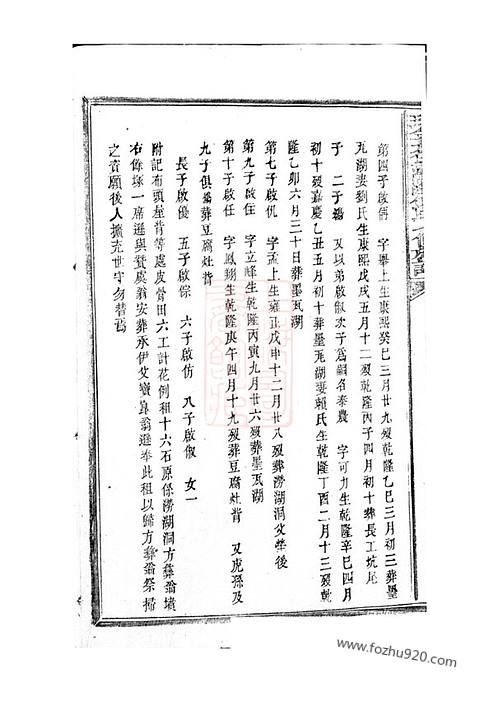 第四子啟倩　字舉上生康熙癸巳三月廿九歿乾隆乙巳三月初三葬墨
瓦湖妻劉氏生康熙戊戌五月十二歿乾隆丙子四月初十葬長工坑尾
子　二子殤　又以弟啟俶次子為嗣名奉農　字可力生乾隆辛巳四月
初十歿嘉慶乙丑五月初十葬墨瓦湖妻賴氏生乾隆丁酉二月十三歿乾
隆乙卯六月二十日葬墨瓦湖
第七子啟仉　字孟上生雍正戊申十二月廿八歿葬澇湖洞父塋後
第九子啟任　字立峰生乾隆丙寅九月廿六歿葬墨瓦湖
第十子啟住　字鳳翔生乾隆庚午四月十九歿葬豆腐灶背　又虎孫及
九子俱葬豆腐灶背
長子啟優　五子啟倧　六子啟仿　八子啟俶　女一
附記布頭墾背等處皮骨田六工計花例租十六石原係澇湖洞方彝翁墳
右餘塚一席遜與贊虞翁安葬承伊父寶員翁遜奉此租以歸方彝翁祭掃
之資願後人擴充世守勿替焉
www.fozhu920.com